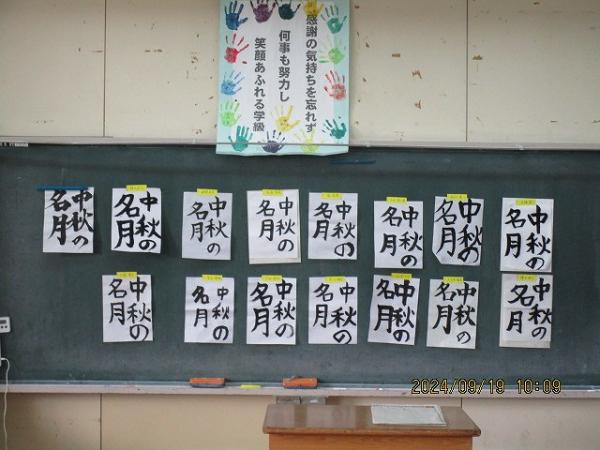 感謝の気持ちを忘れず
何事も努力し
笑顔あふれる学級
中秋の
名月
中秋の
名月
中秋の
名月
中秋の
名月
中秋の
名月
中秋の
名月
中秋の
名月
中秋の
名月
中秋の
名月
中秋の
名月
中秋の
名月
中秋の
名月
中秋の
名月
中秋の
名月
中秋の
名月
2024/09/19 10:09